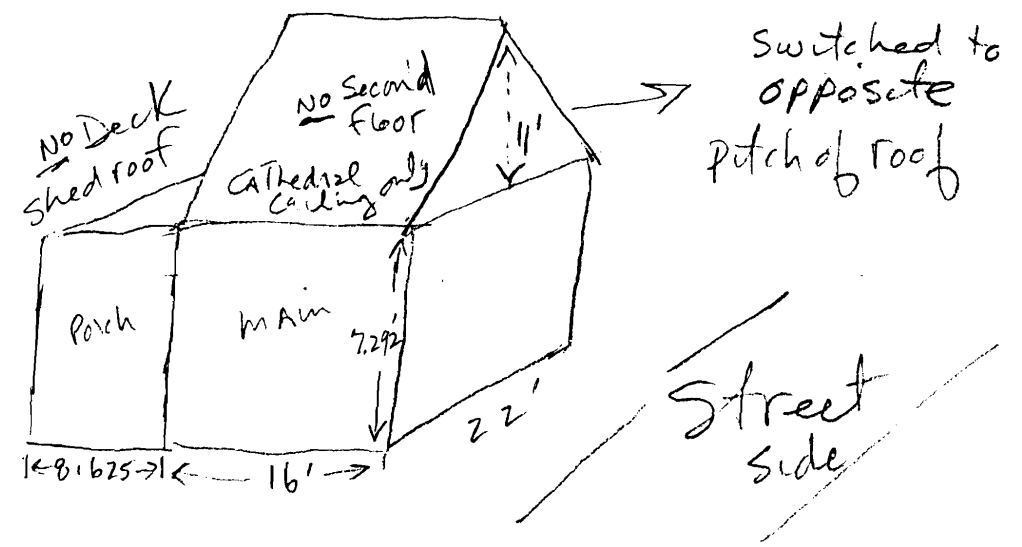 NO Deck
shed roof
NO Second
Floor
CAThedral only
Ceiling
11'
Switched to
opposite
pitch of roof
Porch
MAIN
7.292'
22'
8.625
16'
Street
side